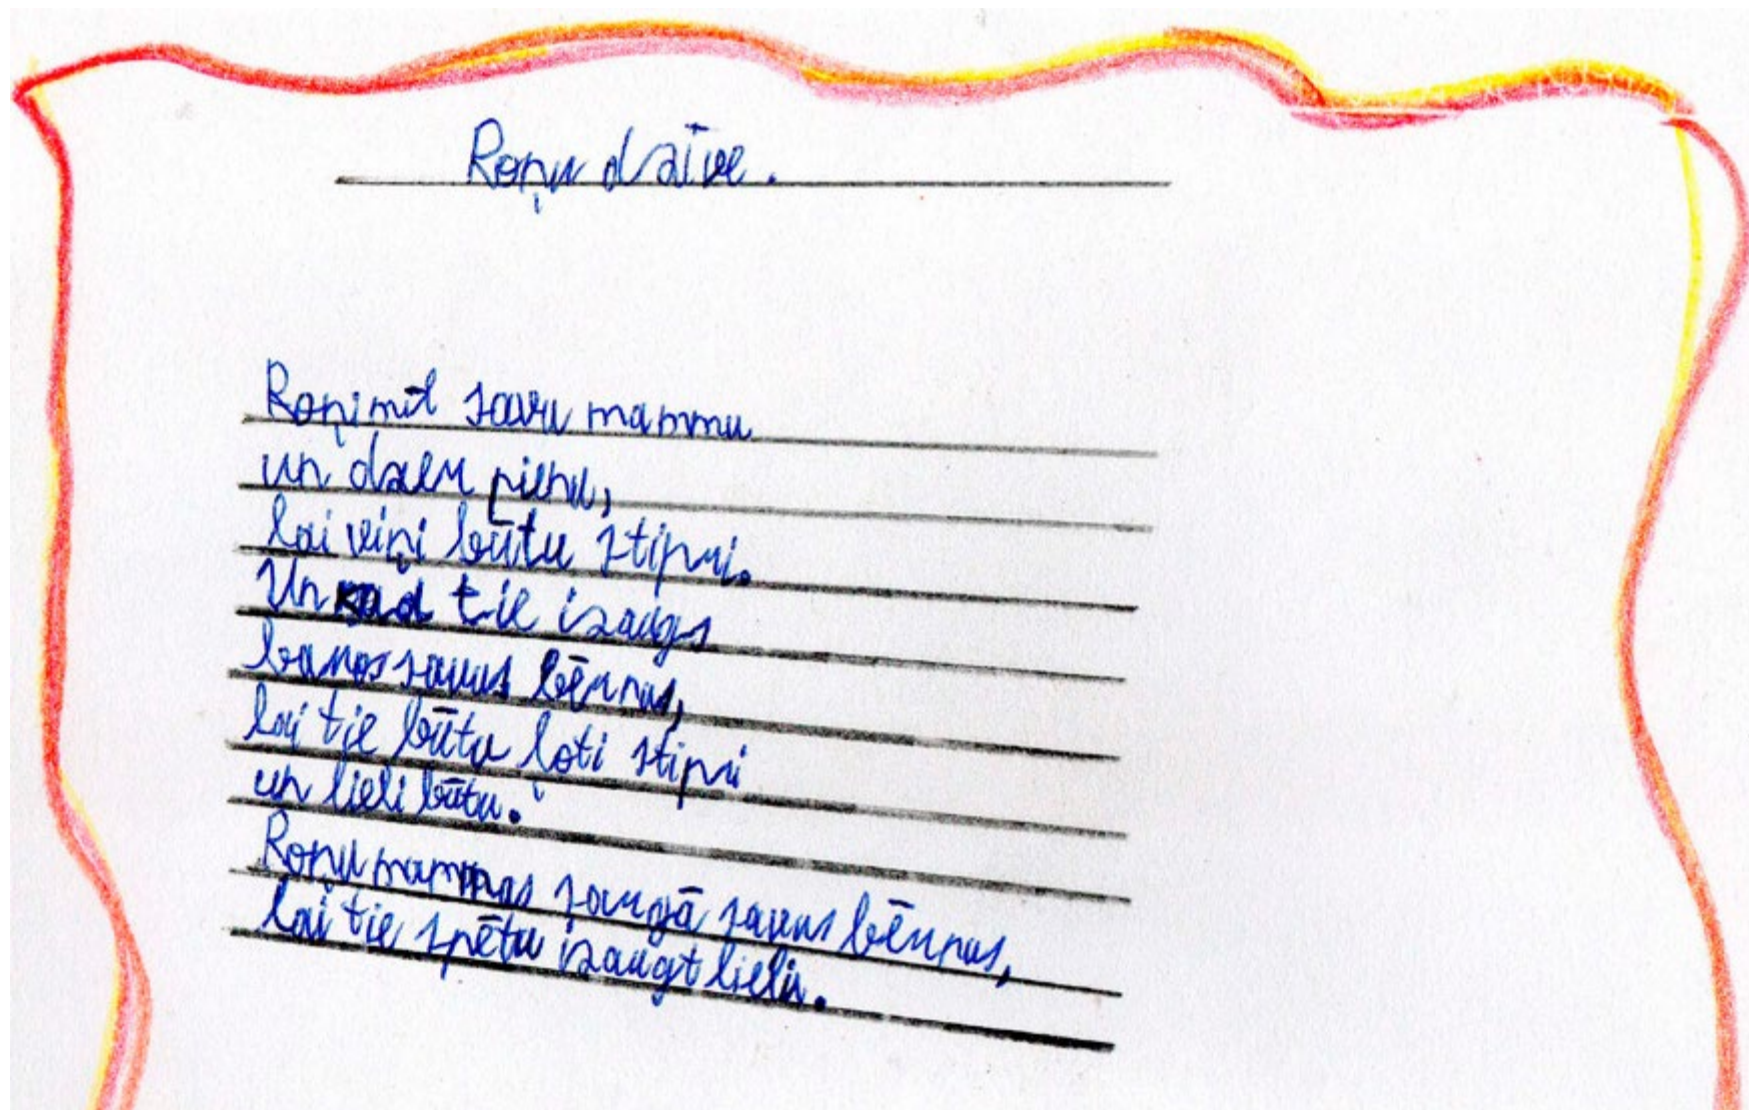 Roņu dzīve.
Roņi mīl savu mammu
un dzer pienu,
lai viņi būtu stipri.
Un kad tie izaugs
baros savus bērnus,
lai tie būtu ļoti stipri
un lieli būtu.
Roņu mammas sargā savus bērnus,
lai tie spētu izaugt lieli.